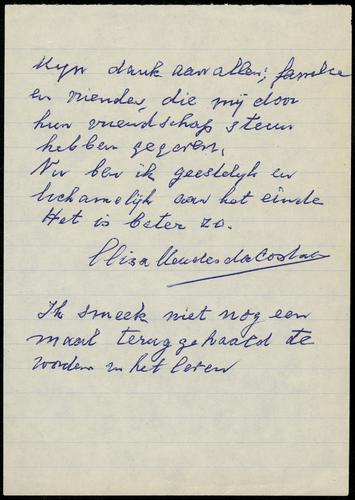 Mijn dank aan allen; familie
en vrienden, die mij door
hun vriendschap steun
hebben gegeven,
Nu ben ik geestelijk en
lichamelijk aan het einde
Het is beter zo.
Eliza Mendes da Costa
Ik smeek niet nog een
maal teruggehaald te
worden in het leven